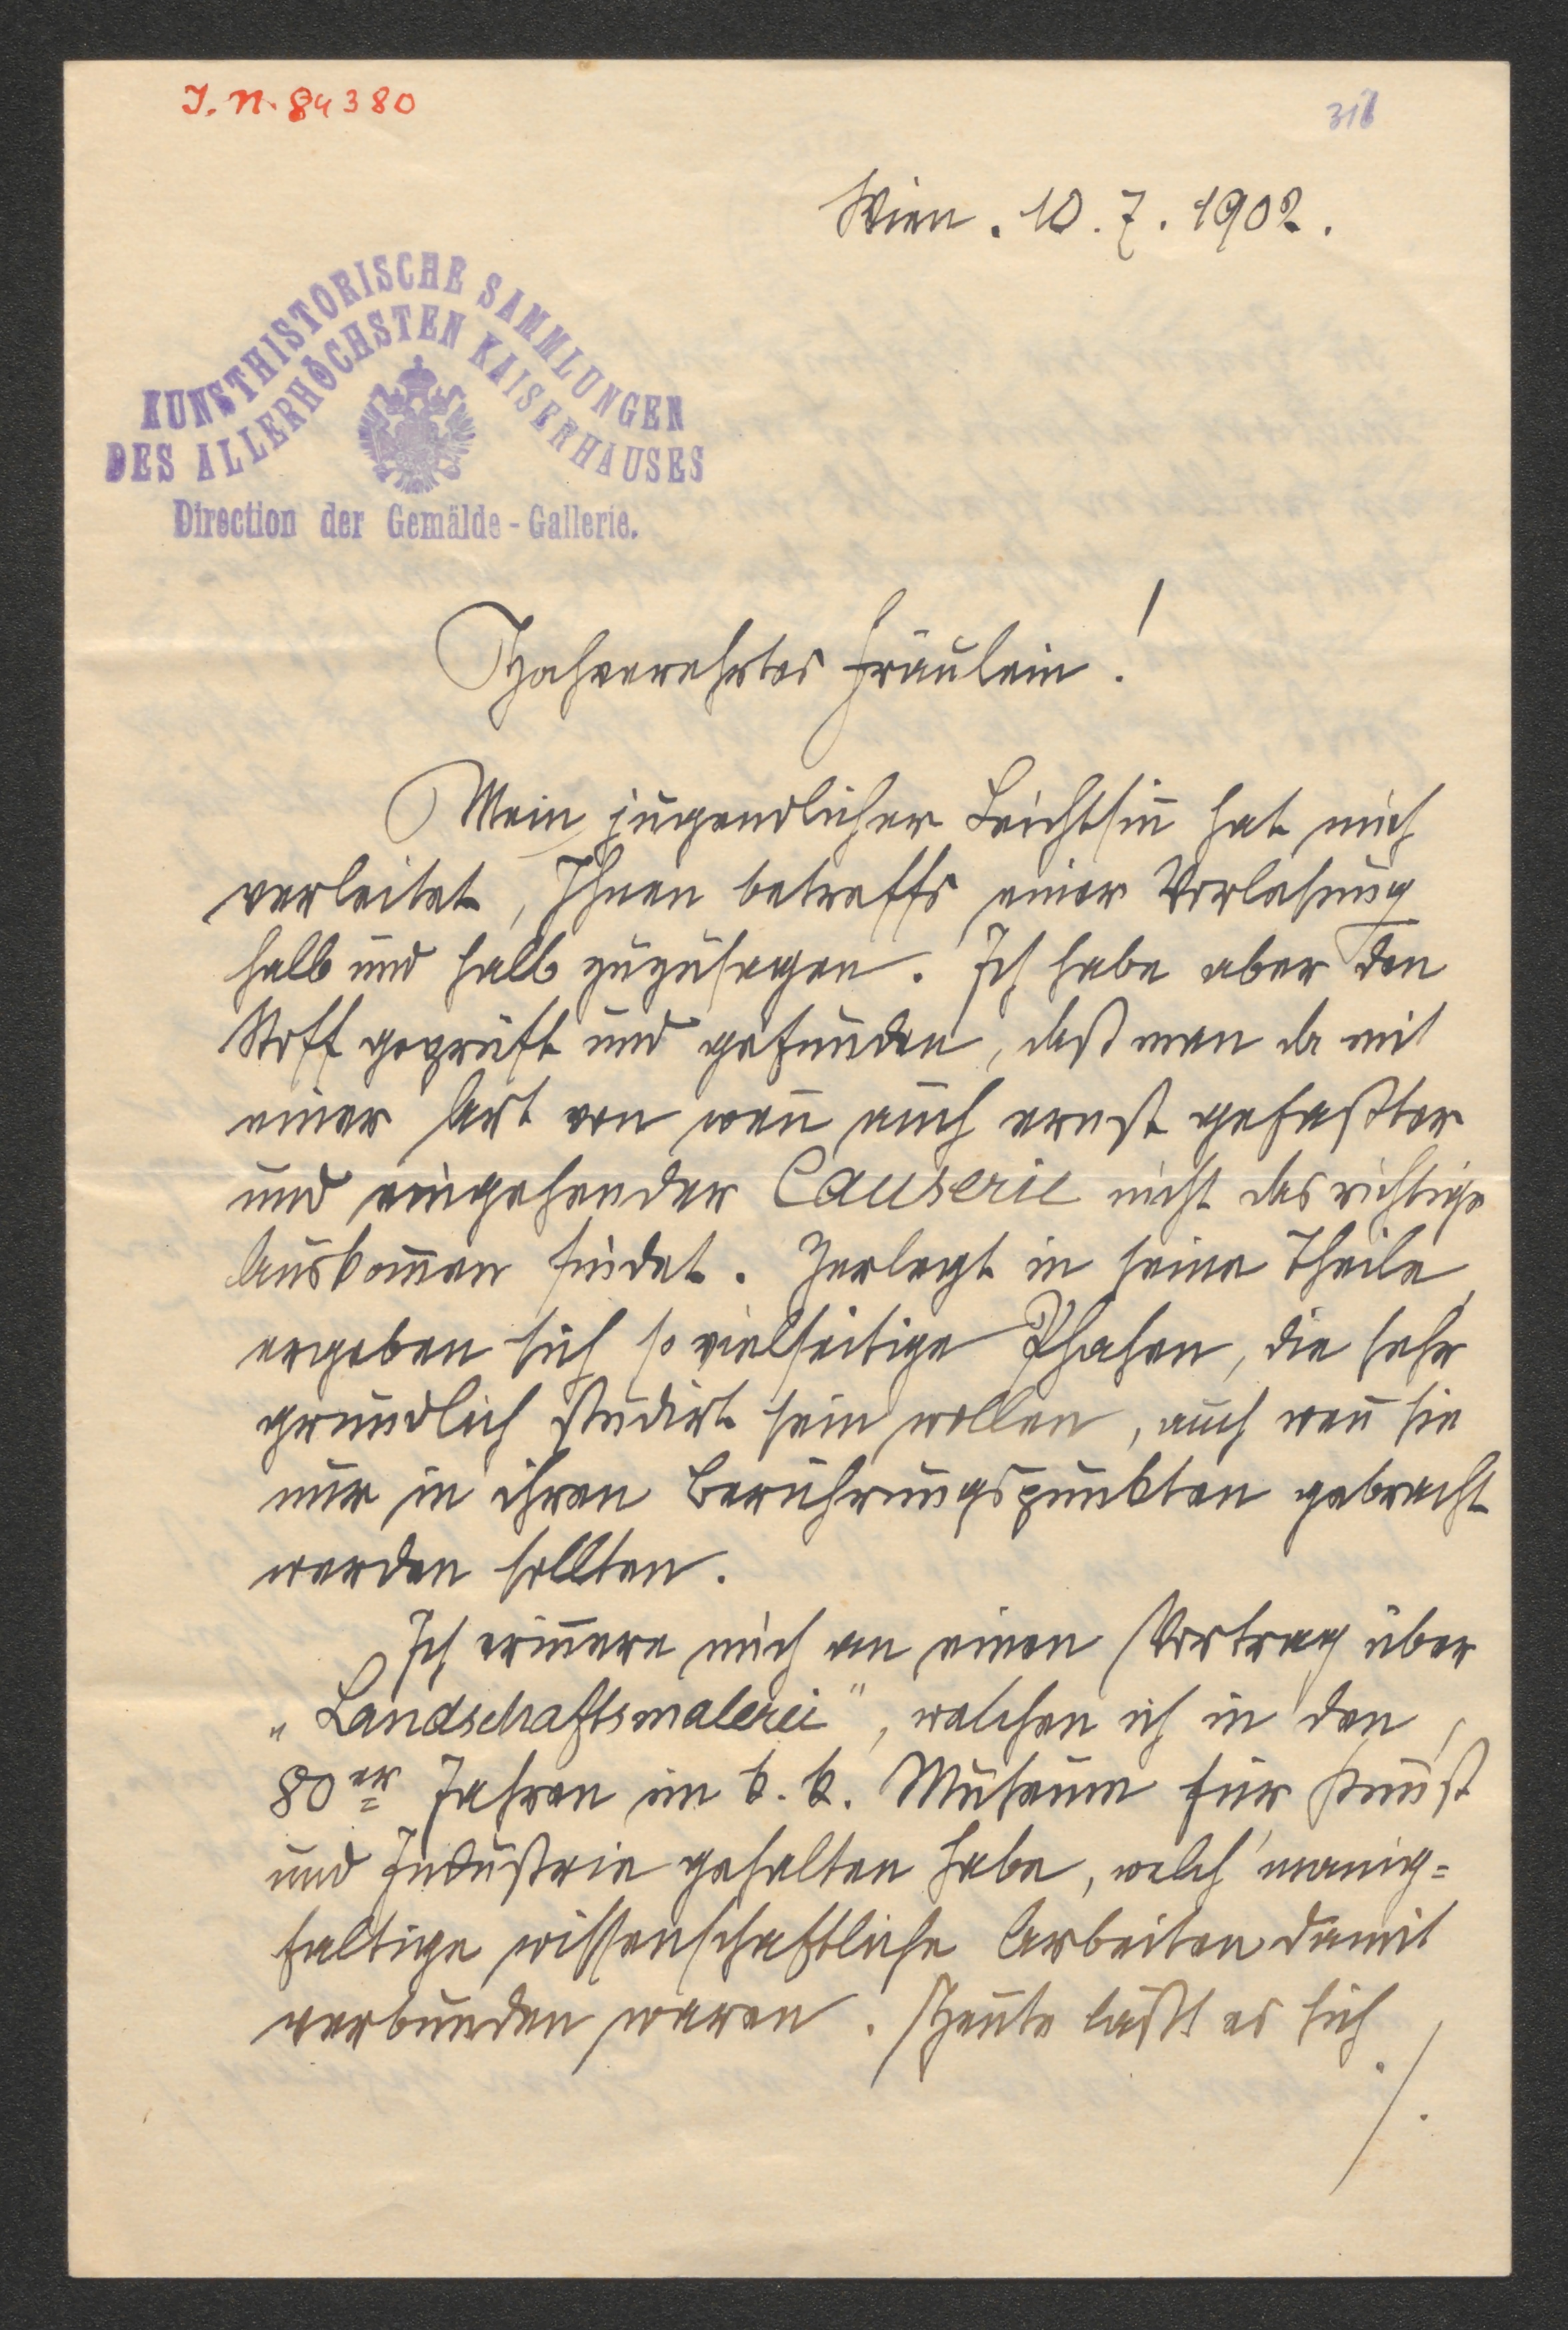 J. N. 84380
318
Wien. 10. 7. 1902.
KUNSTHISTORISCHE SAMMLUNGEN
DES ALLERHÖCHSTEN KAISERHAUSES
Direction der Gemälde-Gallerie.
Hochverehrtes Fräulein!
Mein jugendlicher Leichtsin̄ hat mich
verleitet, Ihnen betreffs einer Vorlesung
halb und halb zuzusagen. Ich habe aber den
Stoff geprüft und gefunden, daß man da mit
einer Art von wen̄ auch ernst gefaßter
und eingehender Causerie nicht das richtige
Auskom̄en findet. Zerlegt in seine Theile,
ergeben sich so vielseitige Phasen, die sehr
gründlich studirt sein wollen, auch wen̄ sie
nur in ihren Berührungspunkten gebracht
werden sollten.
Ich erin̄ere mich an einen Vortrag über
„Landschaftsmalerei", welchen ich in den
80er Jahren im k. k. Museum für Kunst
und Industrie gehalten habe, welch' manig=
faltige wissenschaftliche Arbeiten damit
verbunden waren. Heute läßt es sich
./.